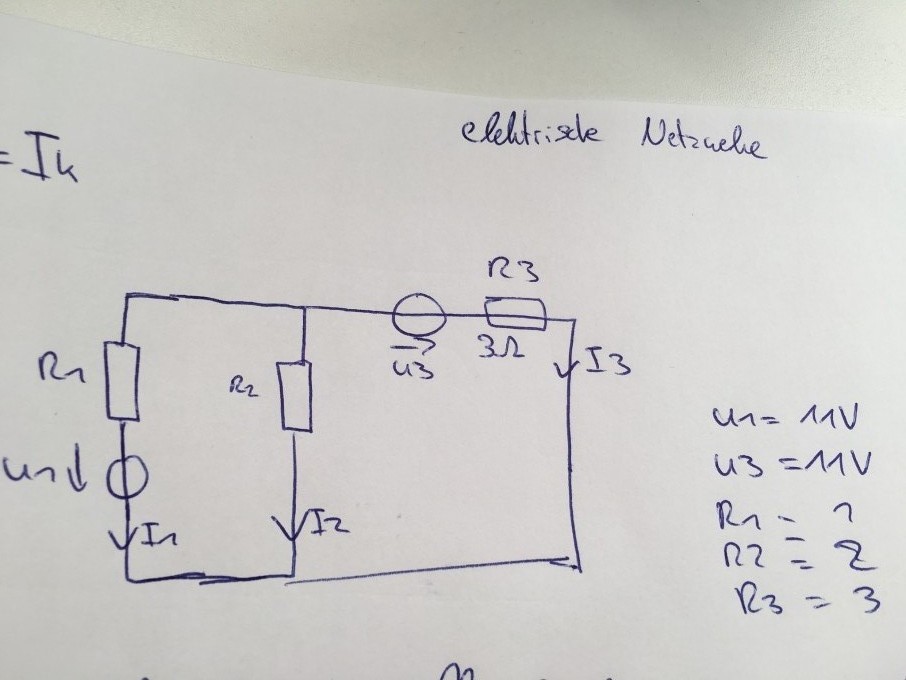 elektrische Netzwerke
= Ik
R3
R1
R2
3Ω
I3
u3
u1
I1
I2
u1 = 11V
u3 = 11V
R1 = 1
R2 = 2
R3 = 3